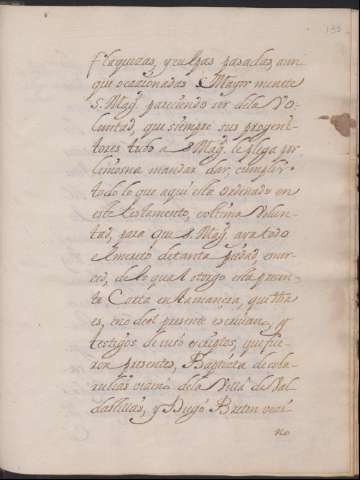 flaquezas, y culpas pasadas, aun
que ocasionadas
S. Mag. pareciendo ser de la Vo-
luntad, que siempre sus progeni-
tores tubo a S. Mag. le plega por
limosna mandar dar, cumplir
todo lo que aqui esta ordenado en
este testamento, ultima Volun-
tad, para que S. Mag. aya todo
el merito de tanta piedad, e mer-
ced, de lo qual otorgo esta presen-
te Carta en la manera, que dha
es, ante el presente escribano, y
testigos de suso escriptos, que fue-
ron presentes, Baptista de
vecino de la Villa de Val-
y Diego Breton veci-
no